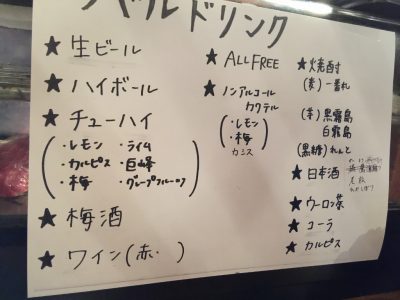 ドリンク
★生ビール
★ハイボール
★チューハイ
(・レモン ・ライム
・カルピス ・巨峰
・梅 ・グレープフルーツ)
★梅酒
★ワイン(赤・ )
★ALL FREE
★ノンアルコール
カクテル
(・レモン
・梅
カシス)
★焼酎
(麦)一番札
(芋)黒霧島
白霧島
(黒糖)れんと
★日本酒
★ウーロン茶
★コーラ
★カルピス